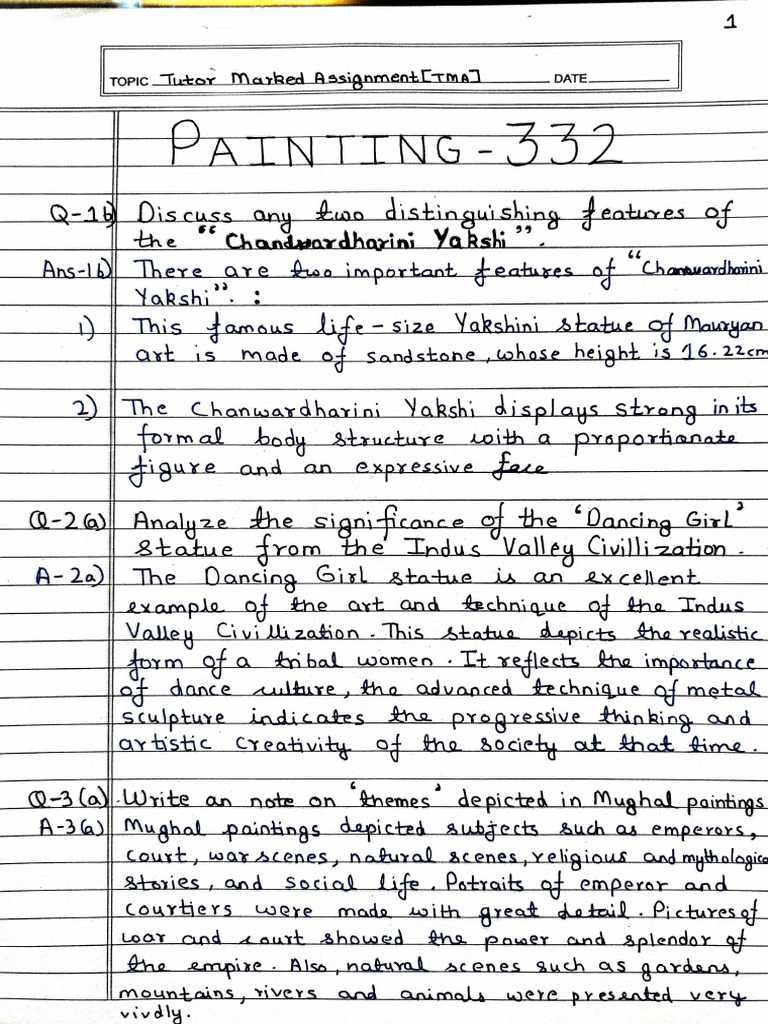 1
TOPIC Tutor Marked Assignment [TMA] DATE
PAINTING-332
Q-1b) Discuss any two distinguishing features of
the "Chandwardharini Yakshi".
Ans-1b) There are two important features of "Chanwardharini
Yakshi". :
1) This famous life-size Yakshini statue of Mauryan
art is made of sandstone, whose height is 16.22cm
2) The Chanwardharini Yakshi displays strong in its
formal body structure with a proportionate
figure and an expressive face
Q-2(a) Analyze the significance of the 'Dancing Girl'
statue from the Indus Valley Civillization.
A-2a) The Dancing Girl statue is an excellent
example of the art and technique of the Indus
Valley Civillization. This statue depicts the realistic
form of a tribal women. It reflects the importance
of dance culture, the advanced technique of metal
sculpture indicates the progressive thinking and
artistic creativity of the society at that time.
Q-3(a) Write an note on 'themes' depicted in Mughal paintings
A-3(a) Mughal paintings depicted subjects such as emperors,
court, war scenes, natural scenes, religious and mythologica
stories, and social life. Potraits of emperor and
courtiers were made with great detail. Pictures of
war and court showed the power and splendor of
the empire. Also, natural scenes such as gardens,
mountains, rivers and animals were presented very
vivdly.